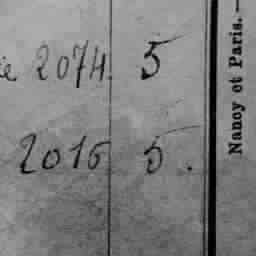 2074 5
2016 5.
Nancy et Paris. —